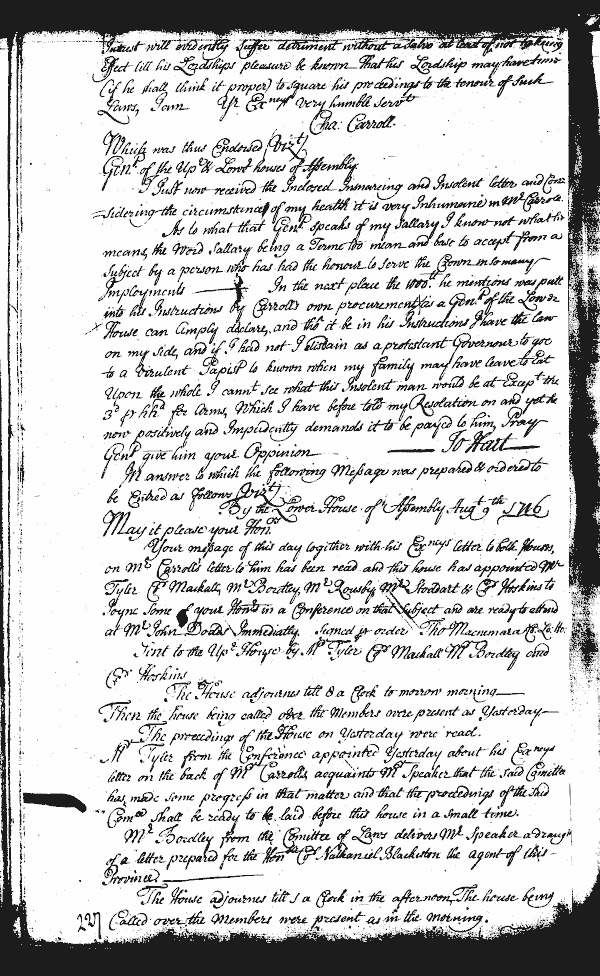 Interest will evidently suffer detriment without a Salvo at least of not takeing
Effect till his Lordships pleasure be known That his Lordship may have time
(if he shall think it proper) to square his proceedings to the tenour of such
Laws, I am Yr. Excncys very humble Servt
Cha: Carroll.
Which was thus Endorsed Vizt
Gent of the Upr & Lowr houses of Assembly
I Just now received the Inclosed Insnareing and Insolent letter and Con=
=sidering the circumstances of my health it is very Inhumane in Mr Carroll.
As to what that Gent speaks of my Sallary I know not what he
means, the Word Sallary being a Terme too mean and base to accept from a
Subject by a person who has had the honour to serve the Crown in so many
Imployments In the next place the he mentions was putt
into his Instructions by Carrolls own procurement as a Gent of the Lower
House can Amply declare, and tho' it be in his Instructions I have the law
on my side, and if I had not I disdain as a protestant Governour to goe
to a Virulent Papist to known when my family may have leave to Eat
Upon the whole I cannt see what this Insolent man would be at Except the
3d p hhd for Arms, Which I have before told my Resolution on and yet he
now positively and Impudently demands it to be payed to him, Pray
Gent give him your Oppinion Jo Hart
In answer to which the following Message was prepared & ordered to
be Entred as follows Vizt
By the Lower House of Assembly Augt 9th 1716
May it please your Honrs
Your message of this day together with his Excncys letter to both Houses,
on Mr Carrolls letter to him has been read and this house has appointed Mr
Tyler Coll Mackall, Mr Bordley, Mr Rousby Mr Stoddart & Coll Hoskins to
Joyne Some of your Honrs in a Conference on that Subject and are ready to attend
at Mr John Immediatly. Signed p order Tho Macnemara Cl. Lo. Ho.
Sent to the Upr House by Mr Tyler Coll Mackall Mr Bordley and
Coll Hoskins
The House adjournes till 8 a Clock to morrow morning
Then the house being called over the Members were present as Yesterday
The proceedings of the House on Yesterday were read.
Mr Tyler from the Conference appointed Yesterday about his Excncys
letter on the back of Mr Carrolls, acquaints Mr Speaker that the said Comittee
has made some progress in that matter and that the proceedings of the said
Comee shall be ready to be laid before this house in a small time.
Mr Bordley from the Comittee of Laws delivers Mr Speaker a draugt
of a letter prepared for the Honble Coll Nathaniel Blackiston the agent of this
Province
The House adjournes till a Clock in the afternoon. The house being
Called over the Members were present as in the morning.
227